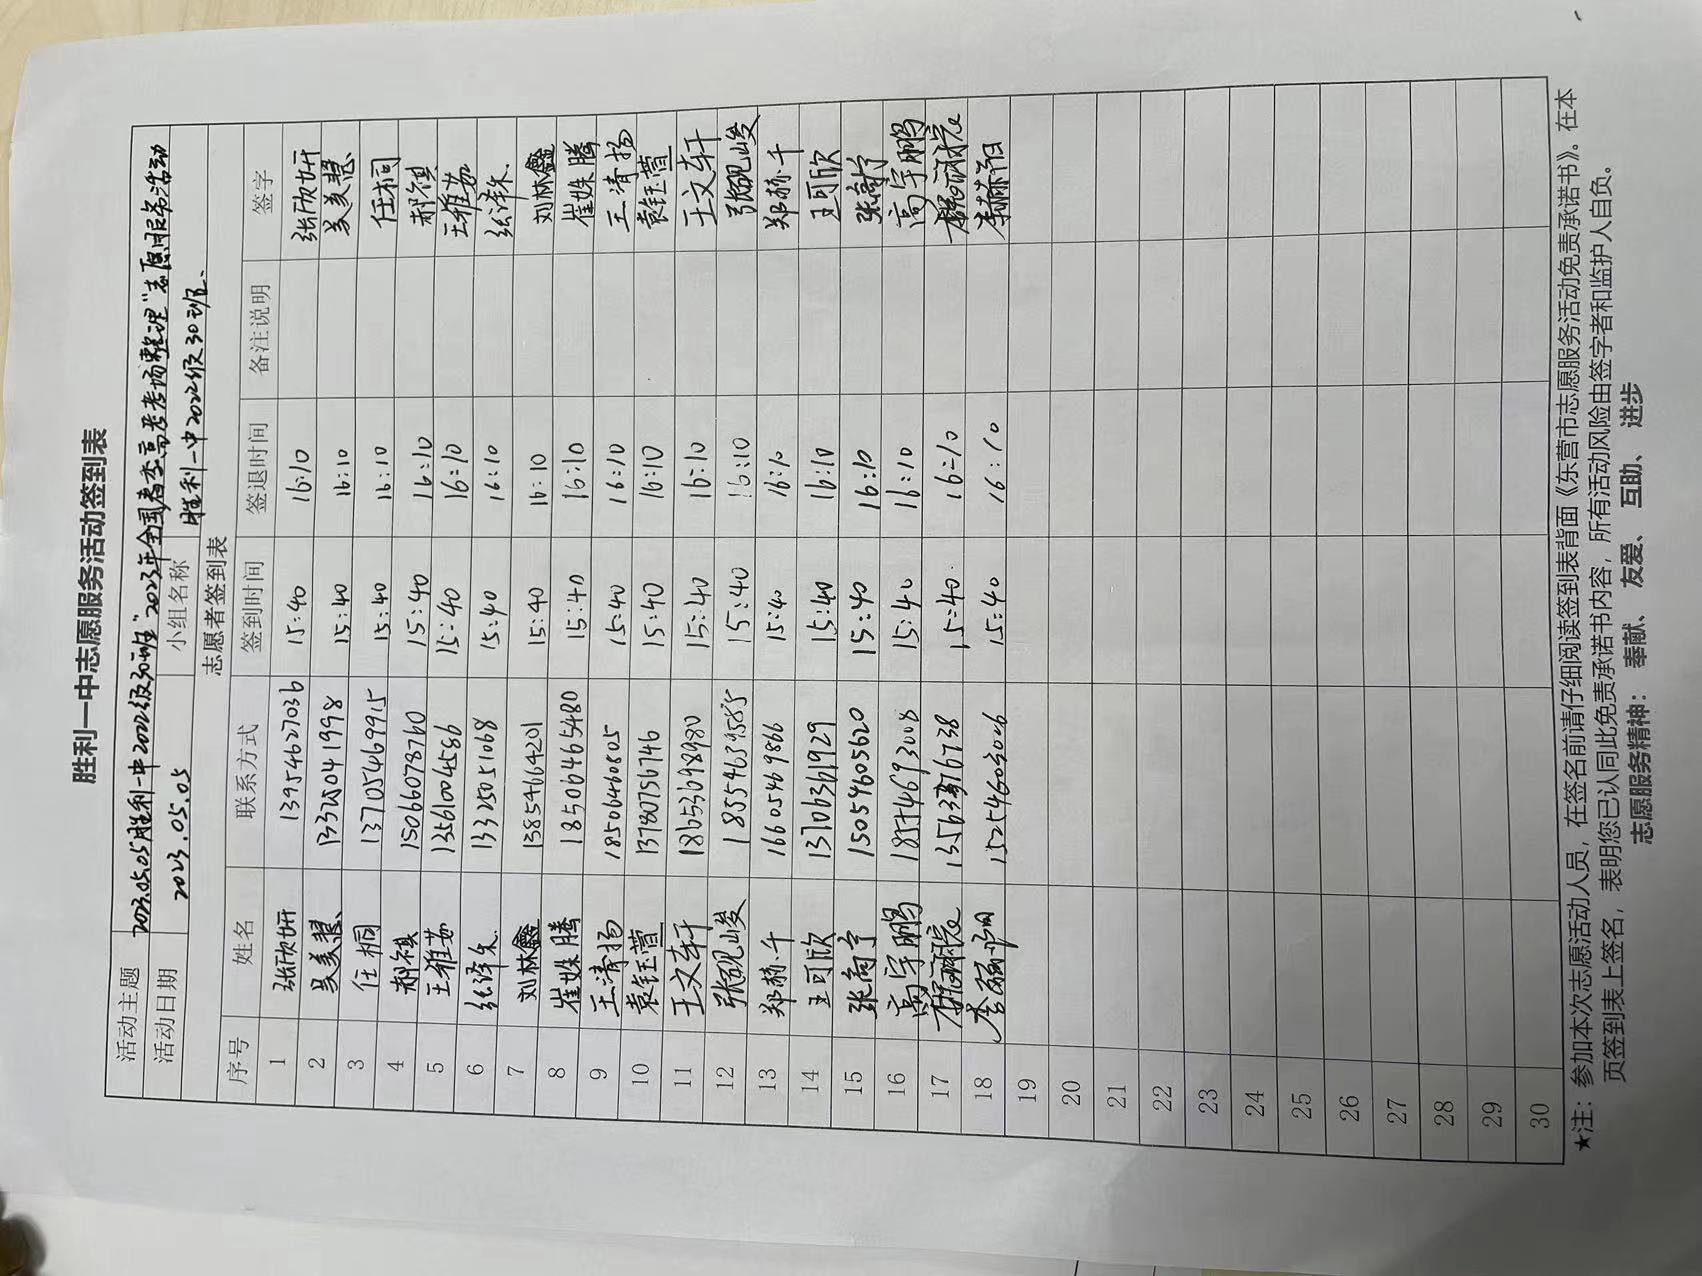 胜利一中志愿服务活动签到表
活动主题 2023.05.05胜利一中2022级30班"2023年全国春季高考考场整理"志愿服务活动
活动日期 2023.05.05 小组名称 胜利一中2022级30班
志愿者签到表
序号 姓名 联系方式 签到时间 签退时间 备注说明 签字
1 张欣妍 13954627036 15:40 16:10 张欣妍
2 吴美慧 13325041998 15:40 16:10 吴美慧
3 任桐 13705469915 15:40 16:10 任桐
4 郝祺 15066078760 15:40 16:10 郝祺
5 王雅茹 13561004586 15:40 16:10 王雅茹
6 张泽朱 13325051068 15:40 16:10 张泽朱
7 刘林鑫 13854664201 15:40 16:10 刘林鑫
8 崔姝腾 18506465480 15:40 16:10 崔姝腾
9 王清扬 18506460805 15:40 16:10 王清扬
10 袁钰萱 13780756746 15:40 16:10 袁钰萱
11 王文轩 18653698980 15:40 16:10 王文轩
12 张砚峻 15:40 16:10 张砚峻
13 郑赫千 16605469866 15:40 16:10 郑赫千
14 王可欣 13706361929 15:40 16:10 王可欣
15 张 15054605620 15:40 16:10 张
16 高宇鹏 18554693008 15:40 16:10 高宇鹏
17 15:40 16:10
18 李 15:40 16:10 李
19
20
21
22
23
24
25
26
27
28
29
30
★注：参加本次志愿活动人员，在签名前请仔细阅读签到表背面《东营市志愿服务活动免责承诺书》。在本
页签到表上签名，表明您已认同此免责承诺书内容，所有活动风险由签字者和监护人自负。
志愿服务精神：奉献、友爱、互助、进步